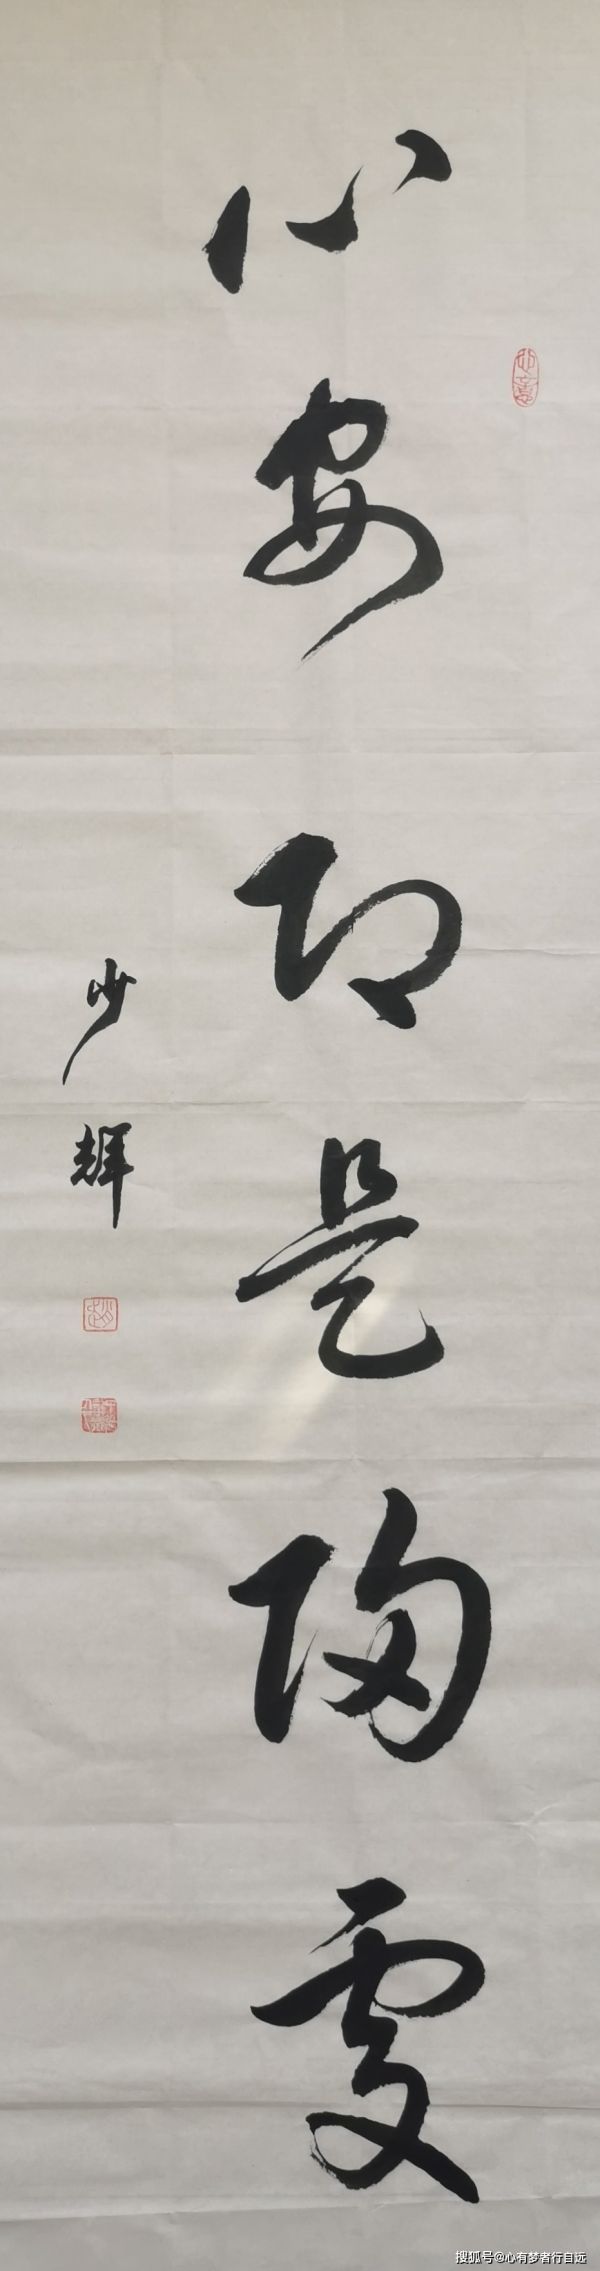 心安即是归处
少辉
搜狐号@心有梦者行自远